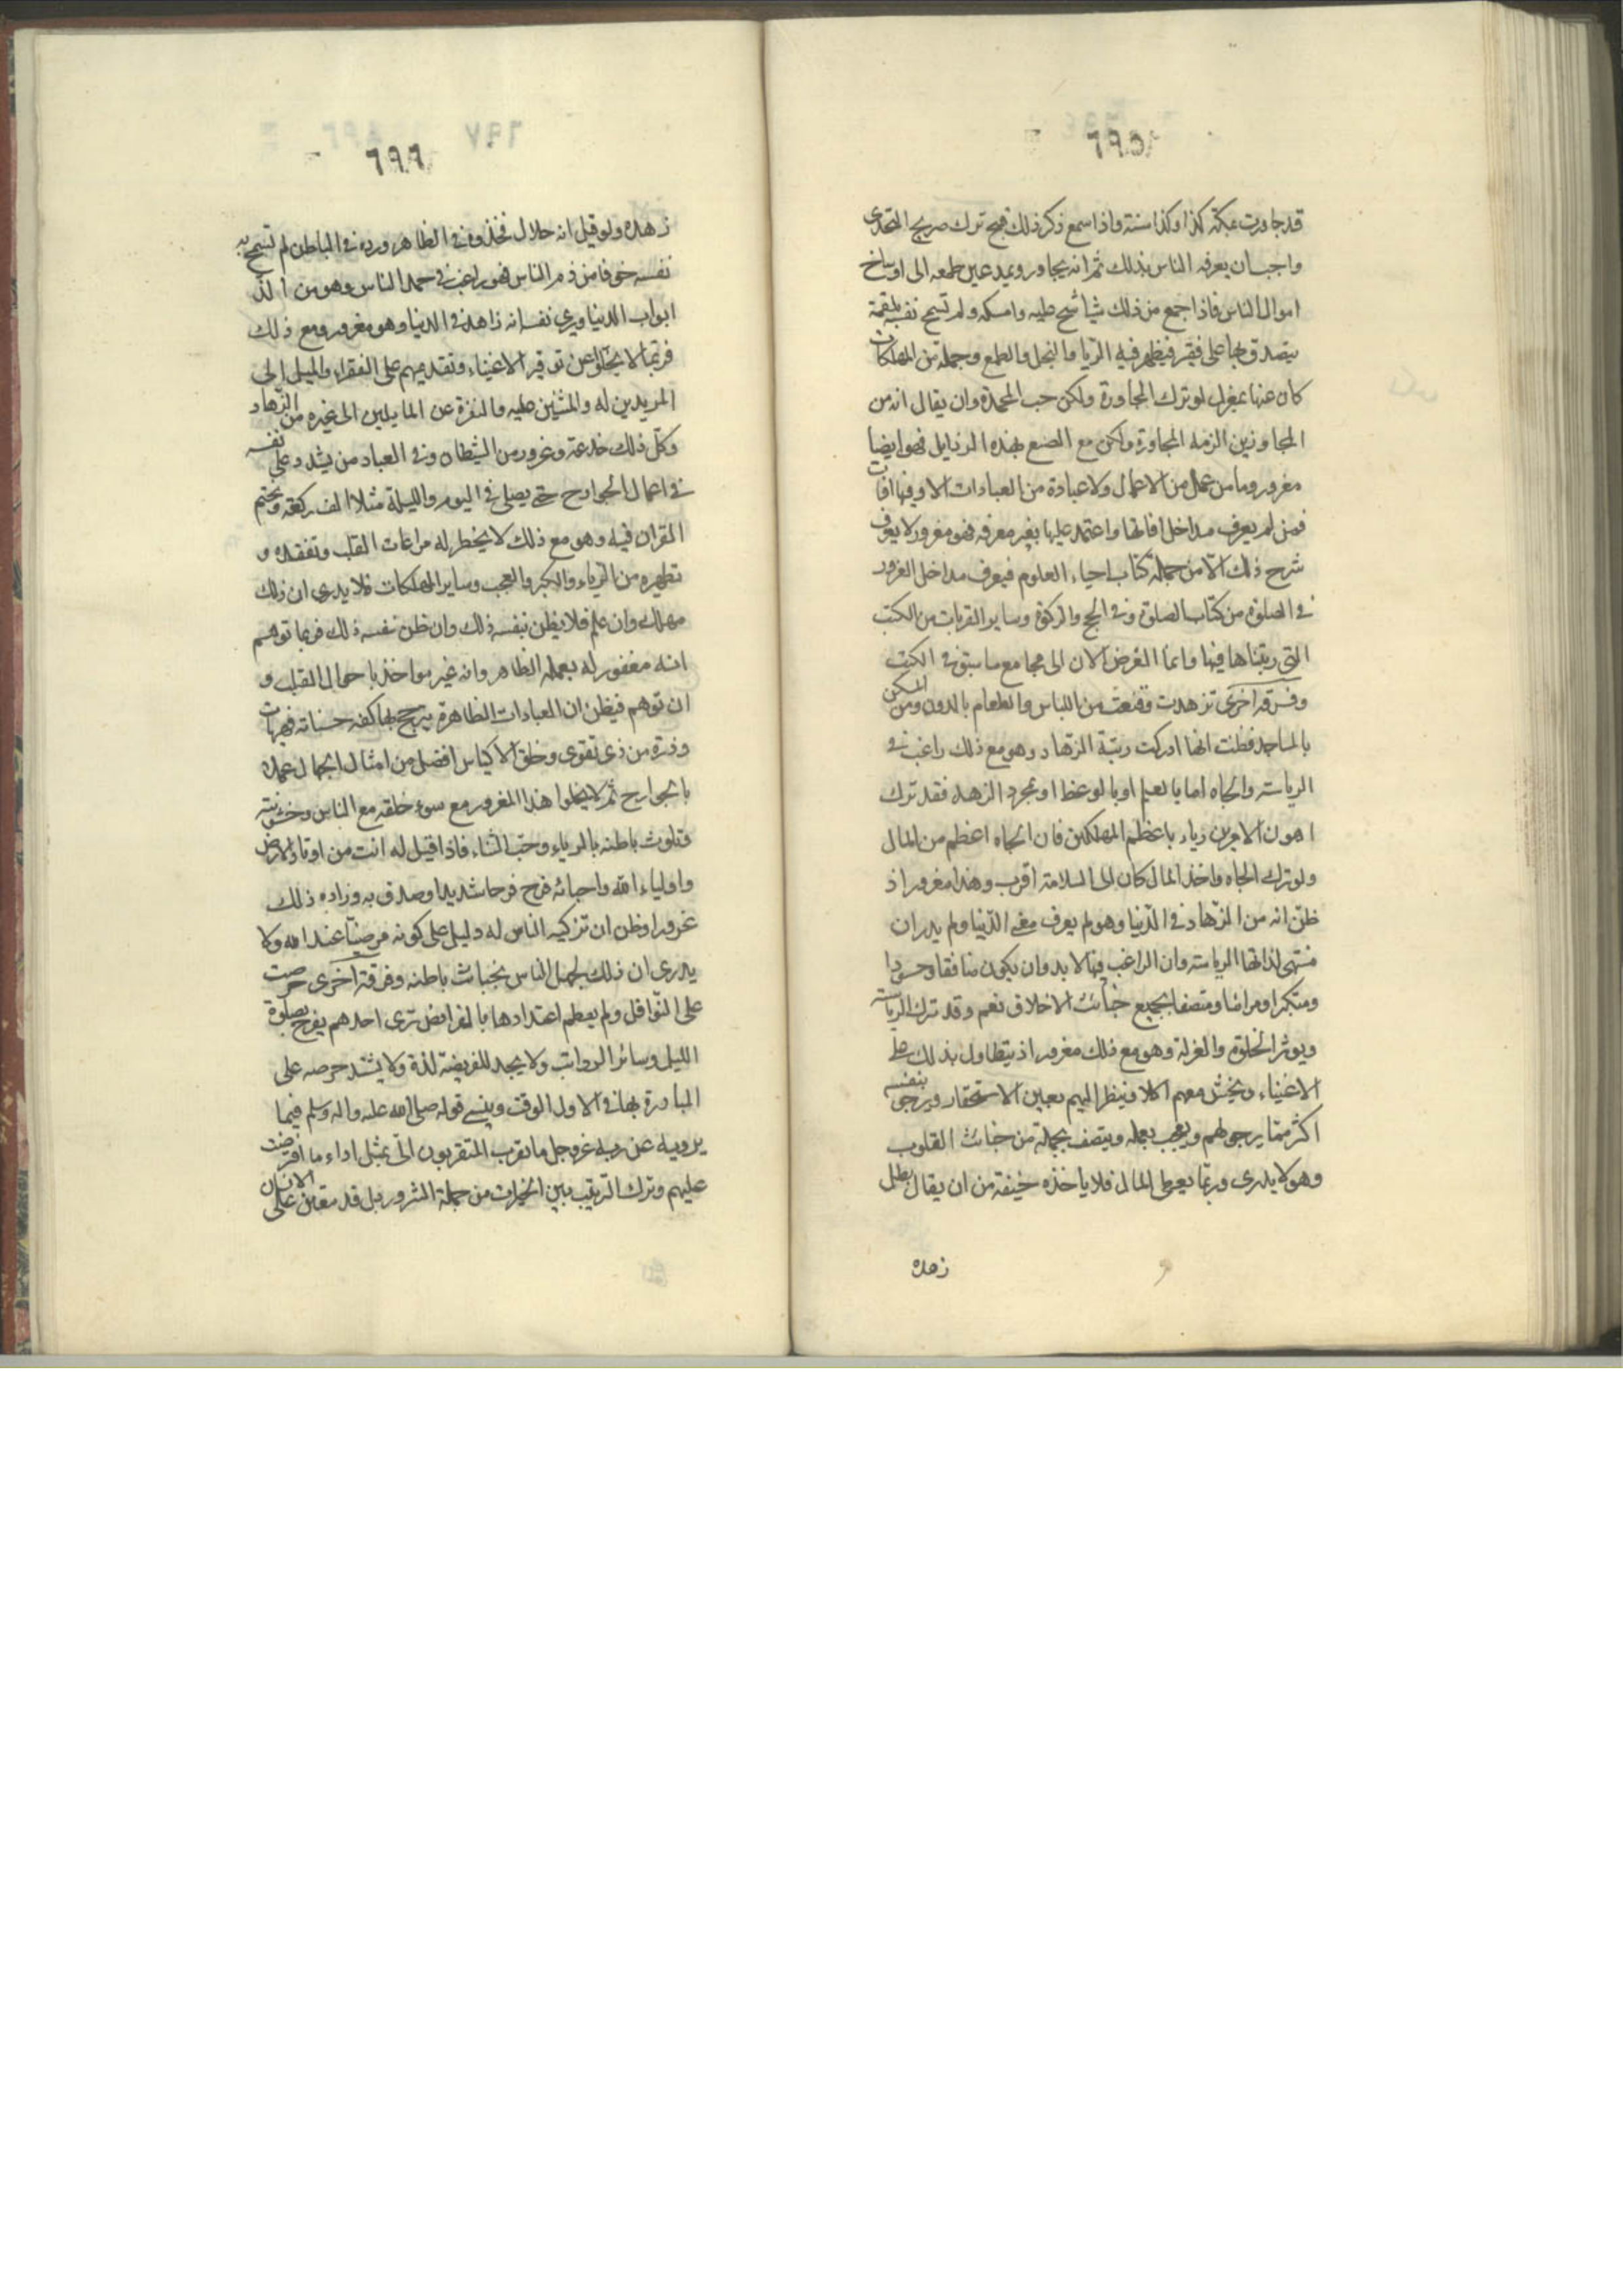 ٦٩٥
قد جاورت بمكة كذا وكذا سنة واذا سمع ذكر ذلك قبح ترك صريح التحدى
واحب ان يعرفه الناس بذلك ثم انه يجاور ويمد عين طمعه الى اوساخ
اموال الناس فاذا جمع من ذلك شيأ شح عليه وامسكه ولم تسمح نفسه بلقمة
يتصدق بها على فقير فيظهر فيه الريا والبخل والطمع وجملة من المهلكات
كان عنها بمعزل لو ترك المجاورة ولكن حب المحمدة وان يقال انه من
المجاورين الزمه المجاورة ولكن مع الصنع بهذه الرذايل فهو ايضا
مغرور وما من عمل من الاعمال ولا عبادة من العبادات الا وفيها افات
فمن لم يعرف مداخل افاتها واعتمد عليها بغير معرفه فهو مغرور لا يعرف
شرح ذلك الا من جملة كتاب احياء العلوم فيعرف مداخل الغرور
فى الصلوة من كتاب الصلوة وفى الحج والزكوة وساير القربات من الكتب
التى رتبناها فيها وانما الغرض الان الى مجامع ما سبق فى الكتب
وفرقة اخرى تزهدت وقنعت من اللباس والطعام بالدون ومن المسكن
بالمساجد فظنت انها ادركت رتبة الزهاد وهو مع ذلك راغب فى
الرياسة والجاه اما بالعلم او بالوعظ او بمجرد الزهد فقد ترك
اهون الامرين رياء باعظم المهلكين فان الجاه اعظم من المال
ولو ترك الجاه واخذ المال كان الى السلامة اقرب وهذا مغرور اذ
ظن انه من الزهاد فى الدنيا وهو لم يعرف معنى الدنيا ولم يدر ان
منتهى لذاتها الرياسة وان الراغب فيها لا بد وان يكون منافقا وحسودا
ومتكبرا ومرائيا ومتصفا بجميع خبائث الاخلاق نعم وقد ترك الرياسة
ويوثر الخلوة والعزلة وهو مع ذلك مغرور اذ يتطاول بذلك على
الاغنياء ويخشن معهم الكلام فينظر اليهم بعين الاستحقار ويرجى بنفسه
اكثر مما يرجو لهم ويعجب بعمله ويتصف بجملة من خبائث القلوب
وهو لا يدرى وربما يعطى المال فلا ياخذه خيفة من ان يقال بطل
زهده
٦٩٦
زهده ولو قيل انه حلال فخذه فى الظاهر ورده فى الباطن لم تسمح به
نفسه خوفا من ذم الناس فهو راغب فى حمد الناس وهو من الذ
ابواب الدنيا ويرى نفسه انه زاهد فى الدنيا وهو مغرور ومع ذلك
فربما لا يخلو عن توقير الاغنياء وتقديمهم على الفقراء والميل الى
المريدين له والمثنين عليه والنفرة عن المايلين الى غيره من الزهاد
وكل ذلك خدعة وغرور من الشيطان وفى العباد من يشدد على نفسه
فى اعمال الجوارح حتى يصلى فى اليوم والليلة مثلا الف ركعة ويختم
القران فيه وهو مع ذلك لا يخطر له مراعات القلب وتفقده و
تطهيره من الرياء والكبر والعجب وساير المهلكات فلا يدرى ان ذلك
مهلك وان علم فلا يظن بنفسه ذلك وان ظن نفسه ذلك فربما توهم
انه مغفور له بعمله الظاهر وانه غير مواخذ باحوال القلب و
ان توهم فيظن ان العبادات الظاهرة يرجح بها كفه حسناته فهيهات
وذرة من ذى تقوى وخلق الاكياس افضل من امثال الجبال عملا
بالجوارح ثم لا يخلوا هذا المغرور مع سوء خلقه مع الناس وخشونته
وتلوث باطنه بالرياء وحب الثناء فاذا قيل له انت من اوتاد الارض
واولياء الله واحبائه فرح فرحا شديدا وصدق به وزاده ذلك
غرورا وظن ان تزكية الناس له دليل على كونه مرضيا عند الله ولا
يدرى ان ذلك لجهل الناس بخبائث باطنه وفرقة اخرى حرصت
على النوافل ولم يعظم اعتدادها بالفرائض ترى احدهم يفرح بصلوة
الليل وسائر الرواتب ولا يجد للفريضة لذة ولا يشتد حرصه على
المبادرة بها فى الاول الوقت وينسى قوله صلى الله عليه واله وسلم فيما
يرويه عن ربه عز وجل ما تقرب المتقربون الى بمثل اداء ما افترضت
عليهم وترك الترتيب بين الخيرات من جملة الشرور بل قد يتعين على الانسان